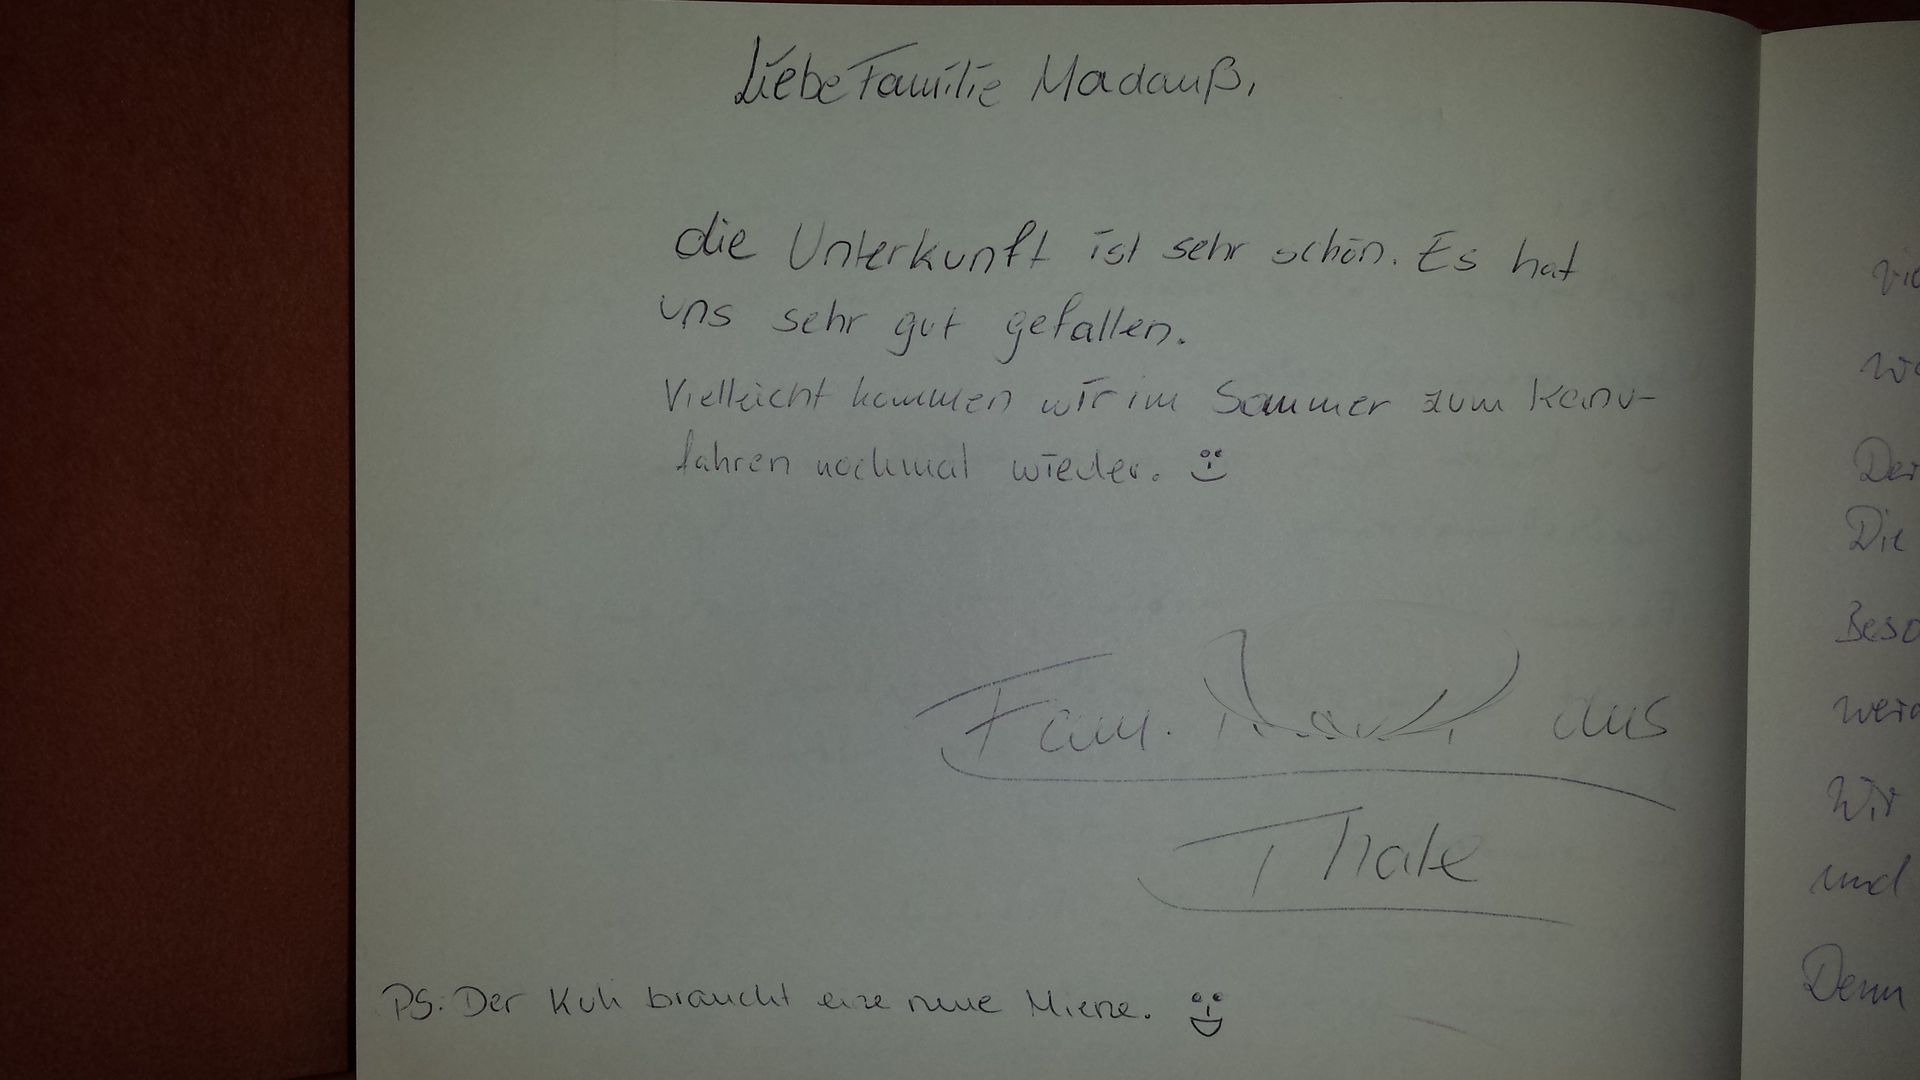 Liebe Familie Madauß,
die Unterkunft ist sehr schön. Es hat
uns sehr gut gefallen.
Vielleicht kommen wir im Sommer zum Kanu-
fahren nochmal wieder.
Fam. aus
Thale
PS: Der Kuli braucht eine neue Miene.
Der
Die
Wir
und
Denn